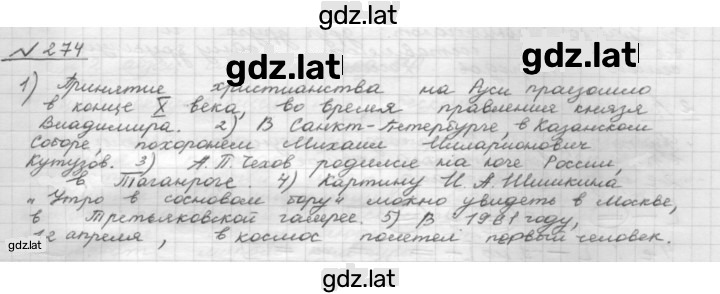 gdz.lat
№ 274
gdz.lat gdz.lat
1) Принятие христианства на Руси праизошло
в конце X века, во время правления князя
Владимира. 2) В Санкт-Петербурге, в Казанском
Соборе, похоронем Михаил Миларионович
Кутузов. 3) А.П.Чехов родился на юге России,
в Таганроге. 4) Картину И.А.Шишкина
"Утро в сосновом бору" можно увидеть в Москве,
в Третьяковской галерее. 5) В 1961 году,
gdz.lat
12 апреля, в космос полетел первый человек.
gdz.lat